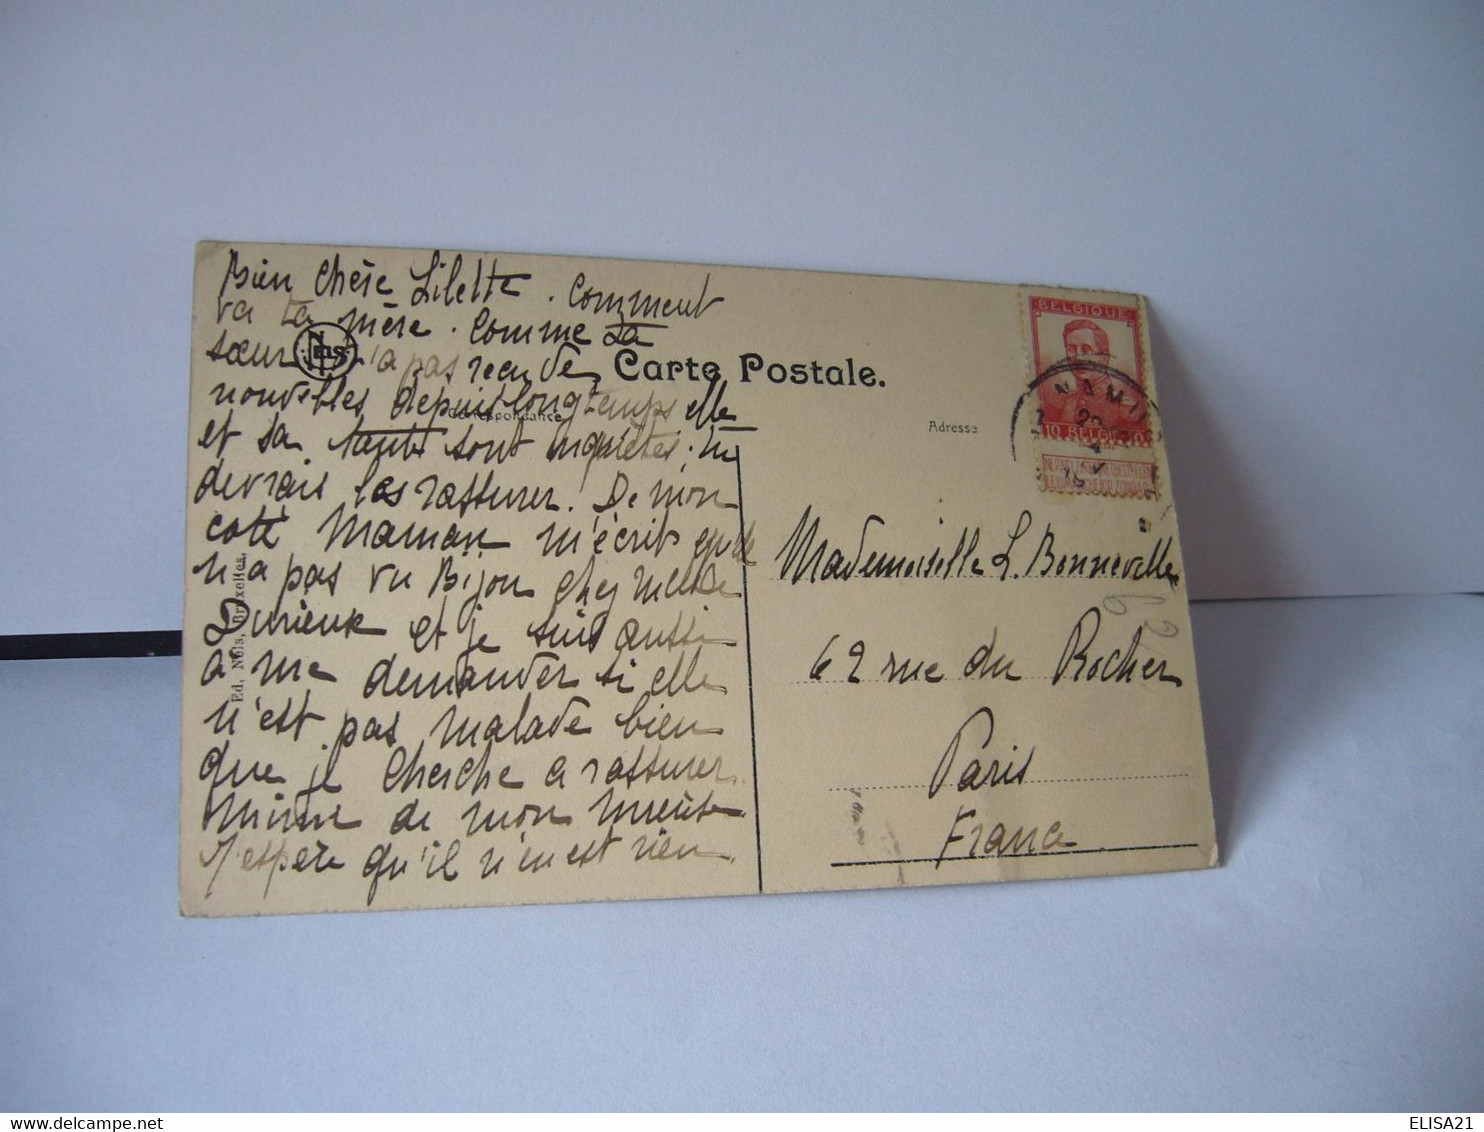 Bien chère Lilette. Comment
va ta mère. Comme ta
sœur n'a pas reçu de
nouvelles depuis longtemps elle
et ta tante sont inquiètes, tu
devrais les rassurer. De mon
coté Maman m'écrit qu'elle
n'a pas vu Bijou chez
Durieux et je suis aussi
a me demander si elle
n'est pas malade bien
que je cherche a rassurer
de mon
J'espère qu'il n'en est rien
NELS
Carte Postale.
Correspondance
Adresse
Ed. Nels, Bruxelles.
BELGIQUE
10 BELGIË 10
NAMU
Mademoiselle L. Bonneville
62 rue du Rocher
Paris
France
ELISA21